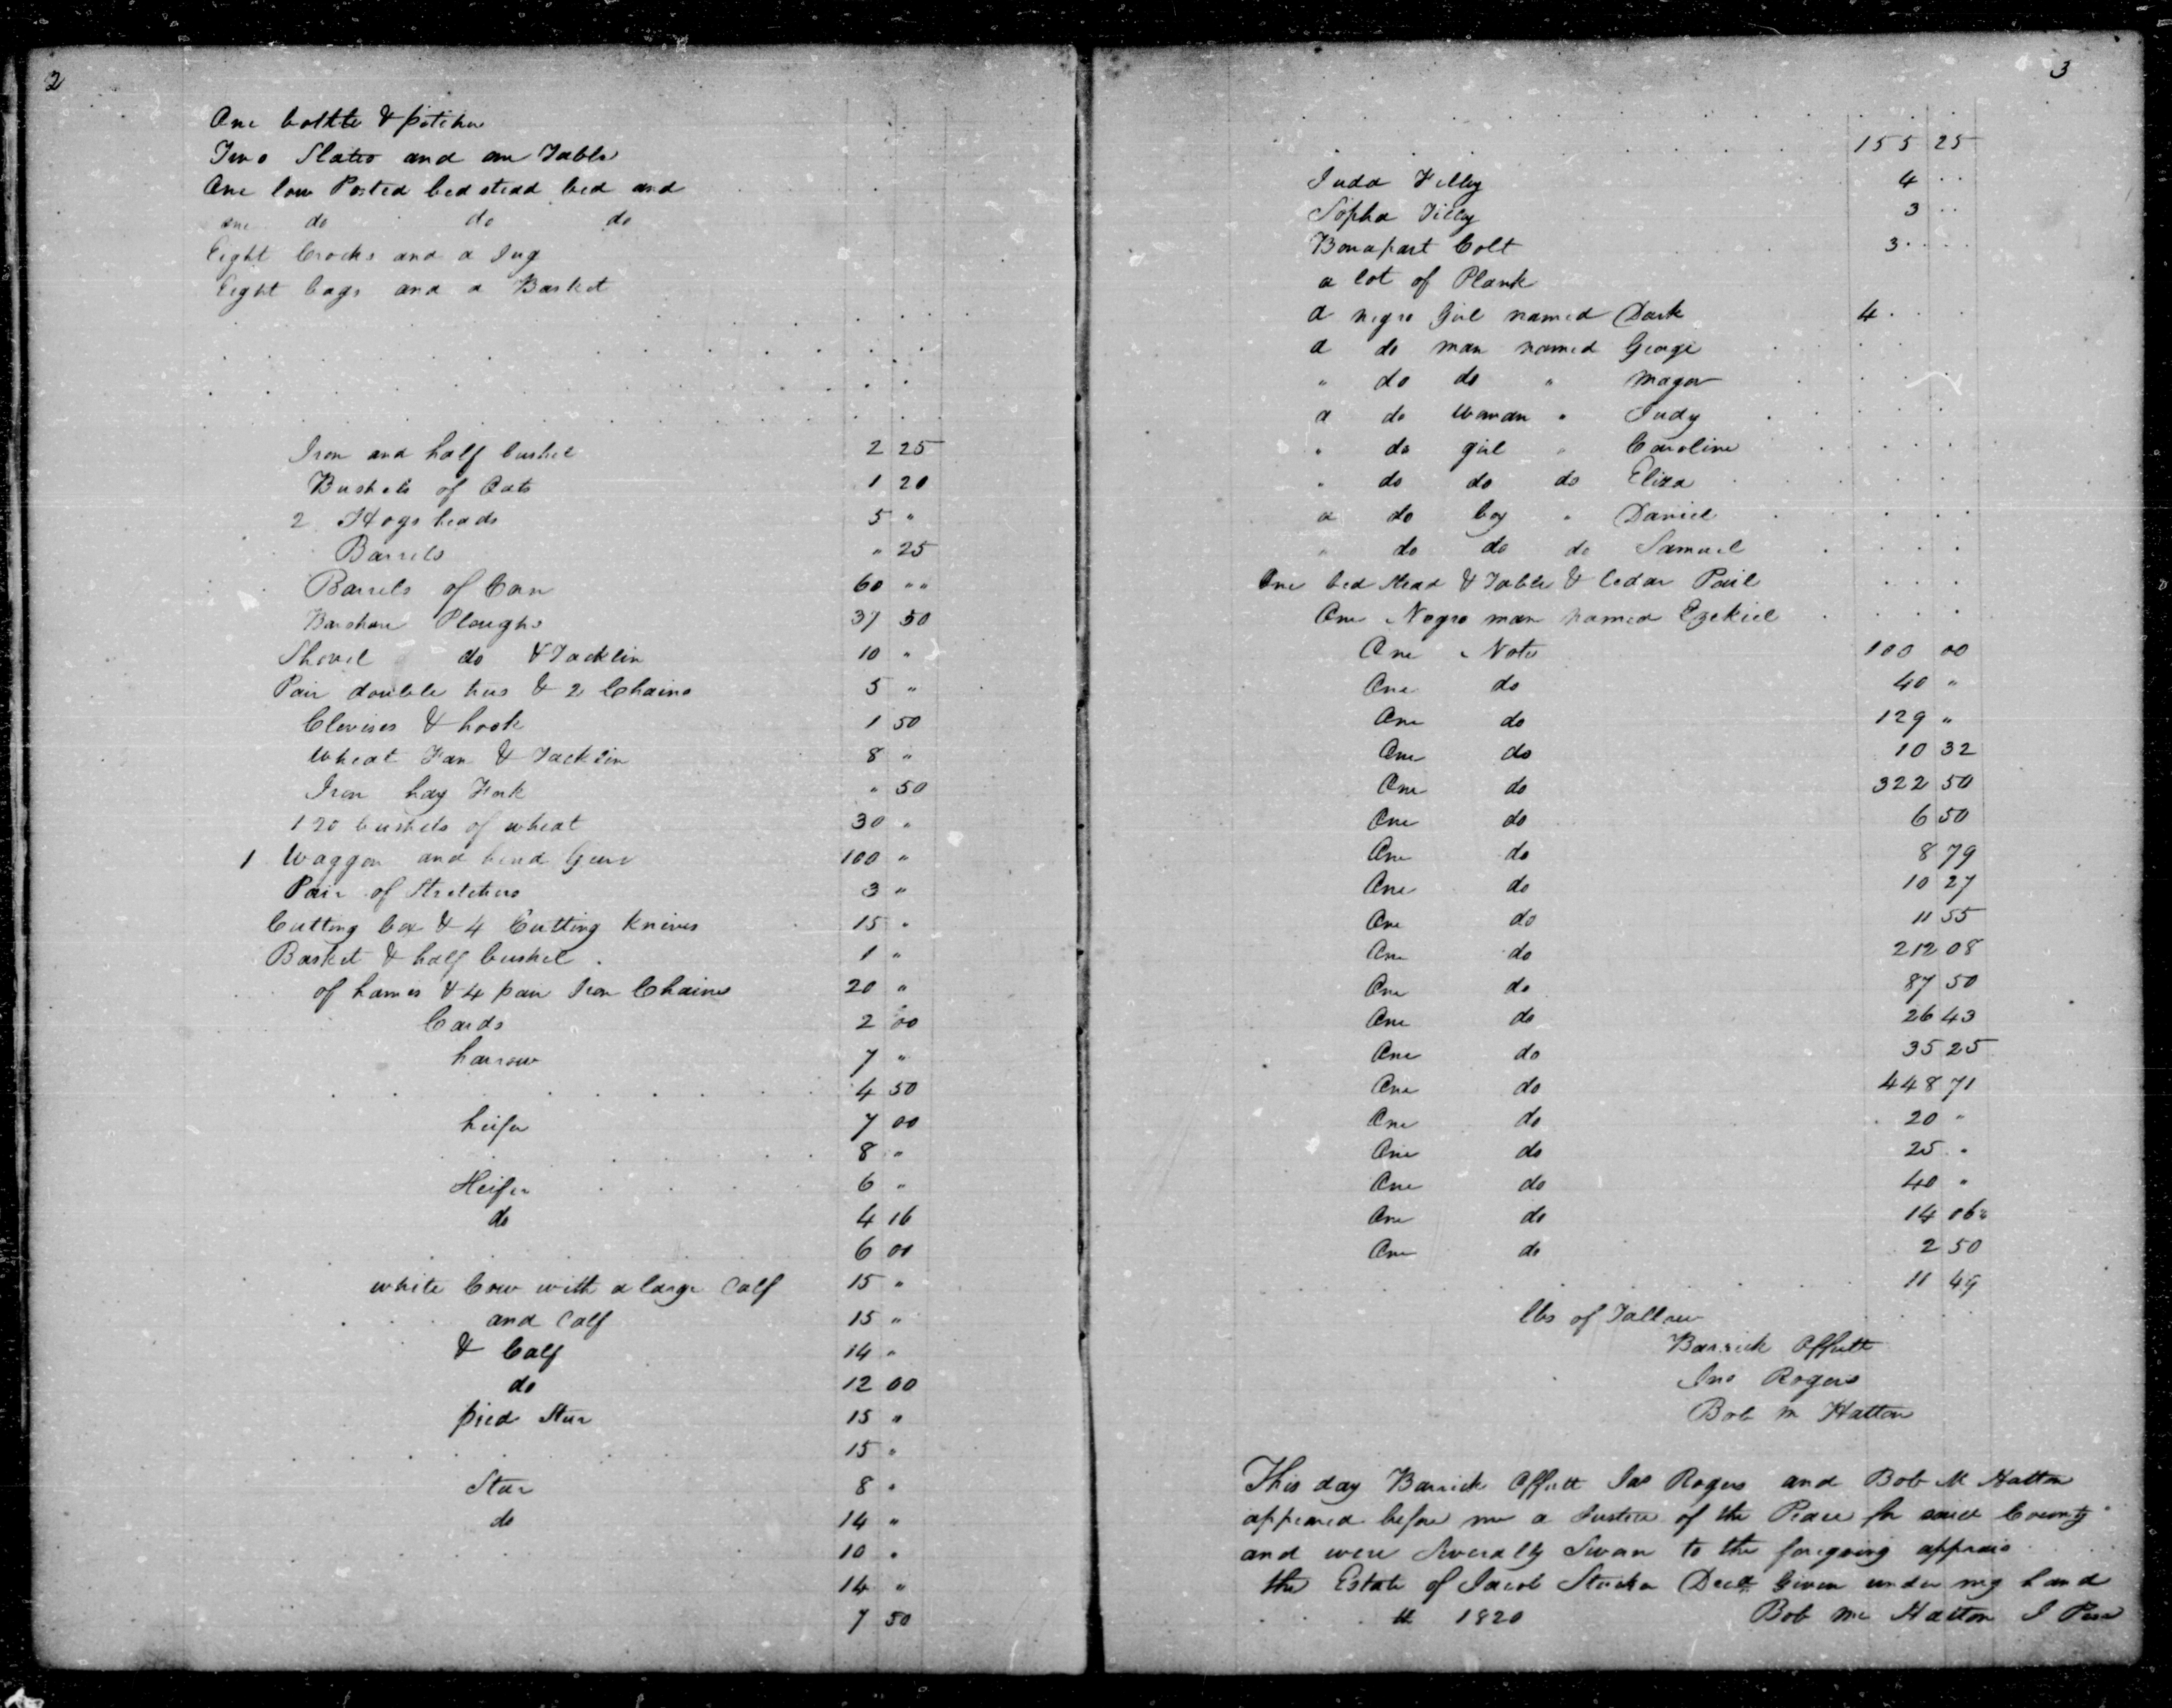 2
One bottle & pitcher
Two Slates and one Table
One low Posted bedstead bed and
one do do do
Eight Crocks and a Jug
Eight bags and a Basket
Iron and half bushel 2 25
Bushels of Oats 1 20
2 Hogsheads 5 "
Barrels " 25
Barrels of Corn 60 " "
Barshare Ploughs 37 50
Shovel do & Tacklin 10 "
Pair double trees & 2 Chains 5 "
Clevises & hook 1 50
Wheat Fan & Tacklin 8 "
Iron hay Fork " 50
120 bushels of wheat 30 "
1 Waggon and hind Gears 100 "
Pair of Stretchers 3 "
Cutting box & 4 Cutting Knives 15 "
Basket & half bushel 1 "
of hames & 4 pair Iron Chains 20 "
Cards 2 00
harrow 7 "
4 50
heifer 7 00
8 "
Heifer 6 "
do 4 16
6 00
white Cow with a large Calf 15 "
and Calf 15 "
& Calf 14 "
do 12 00
pied Steer 15 "
15 "
Steer 8 "
do 14 "
10 "
14 "
7 50
3
155 25
Juda Filley 4
Sopha Filley 3
Bonapart Colt 3
a lot of Plank
a negro Girl named Dark 4
a do man named George
" do do " Magor
a do Woman " Judy
" do girl " Caroline
" do do do Eliza
a do boy " Daniel
" do do do Samuel
One bed stead & Table & Cedar Pail
One Negro man named Ezekiel
One Note 100 00
One do 40 "
One do 129 "
One do 10 32
One do 322 50
One do 6 50
One do 8 79
One do 10 27
One do 11 55
One do 212 08
One do 87 50
One do 26 43
One do 35 25
One do 448 71
One do 20 "
One do 25 "
One do 40 "
One do 14 06
One do 2 50
11 49
lbs of Tallow
Barrick Offutt
Jno Rogers
Bob M Hatton
This day Barrick Offutt Jas Rogers and Bob M Hatton
appeared before me a Justice of the Peace for said County
and were Severally Sworn to the foregoing apprais
the Estate of Jacob Stucker Decd. Given under my hand
th 1820 Bob Mc Hatton J Peace